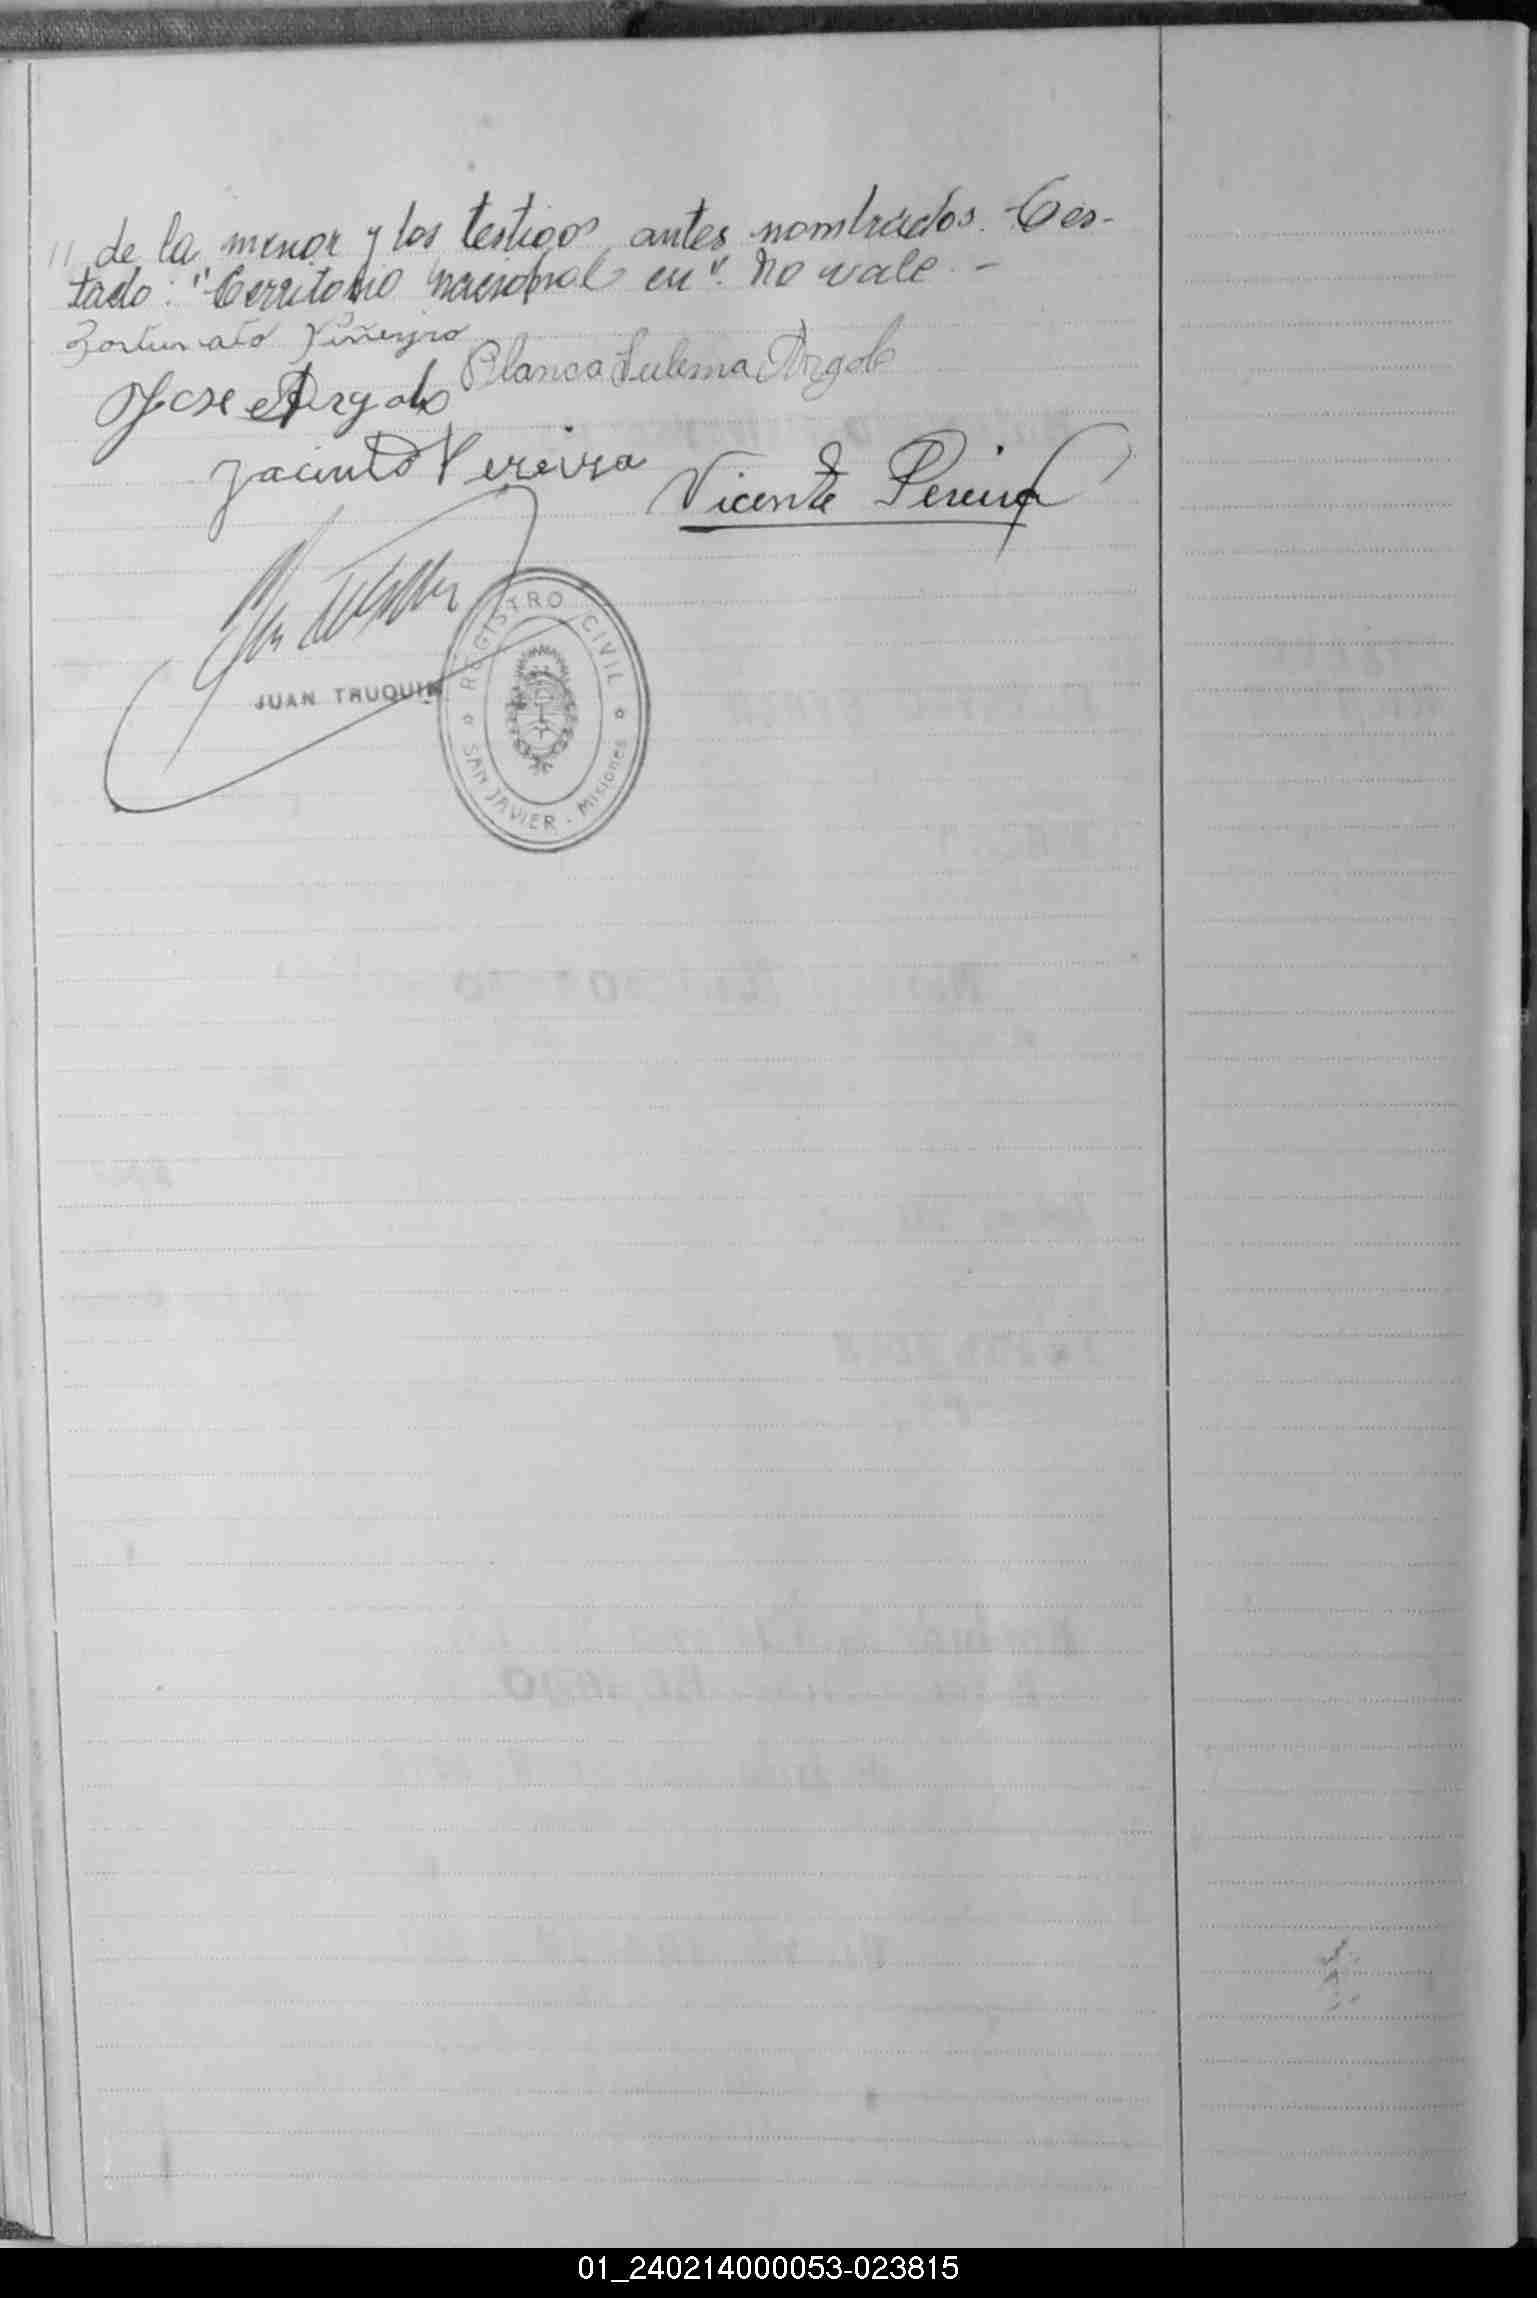 // de la menor y los testigos antes nombrados. Tes-
tado: "Territorio nacional en". No vale. -
Fortunato Piñeyro
Blanca Zulema Argolo
Jose Argolo
Jacinto Pereira
Vicente Pereira
JUAN TRUQUIN
REGISTRO CIVIL
SAN JAVIER - Misiones
01_240214000053-023815